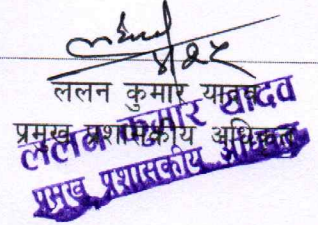 ४/२५
ललन कुमार यादव
प्रमुख प्रशासकीय अधिकृत
ललन कुमार यादव
प्रमुख प्रशासकीय अधिकृत